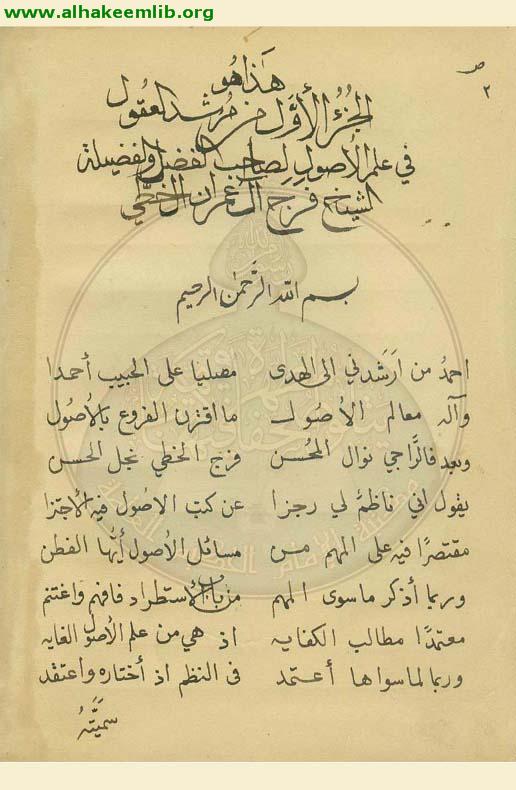 www.alhakeemlib.org
ص
٢
هٰذا هو
الجُزُءُ الأوَّل من مُرشد العقول
في علم الأصول لِصاحب الفضل والفضيلة
الشيخ فرج ال عمران الخطّي
بسم الله الرَّحمٰن الرحيم
احمدُ من ارَشدني الى الهدى مصليا على الحبيب أحمدا
وآله معالم الأصُول ما اقترن الفروع بالأصُول
وبعد فالرَّاجي نوال المُحسن فرج الخطي نجل الحسن
يقول اني ناظمٌ لي رجزا عن كتب الاصُول فيه الاجتزا
مقتصرًا فيه على المهم من مسائل الأصول أيُّها الفطن
وربما أذكر ما سوى المهم من باب الأستطراد فافهم واغتنم
معتمدًا مطالب الكفايه اذ هي من علم الأصول الغايه
وربما لما سواها أعتمد في النظم اذ أختاره وأعتقد
سمَّيتُهُ